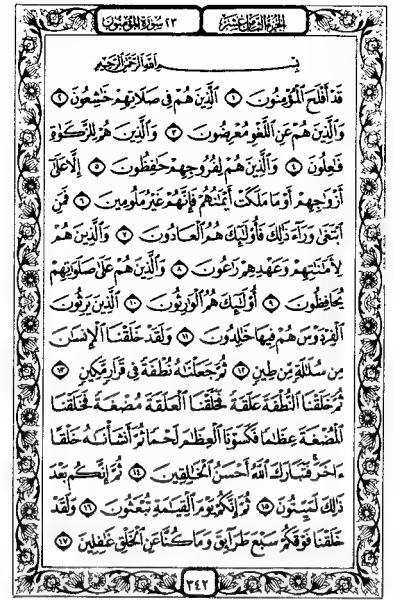 الجزء الثامن عشر
٢٣ سورة المؤمنون
بِسْمِ اللَّهِ الرَّحْمَٰنِ الرَّحِيمِ
قَدْ أَفْلَحَ الْمُؤْمِنُونَ ١ الَّذِينَ هُمْ فِي صَلَاتِهِمْ خَاشِعُونَ ٢
وَالَّذِينَ هُمْ عَنِ اللَّغْوِ مُعْرِضُونَ ٣ وَالَّذِينَ هُمْ لِلزَّكَوٰةِ
فَاعِلُونَ ٤ وَالَّذِينَ هُمْ لِفُرُوجِهِمْ حَافِظُونَ ٥ إِلَّا عَلَىٰ
أَزْوَاجِهِمْ أَوْ مَا مَلَكَتْ أَيْمَانُهُمْ فَإِنَّهُمْ غَيْرُ مَلُومِينَ ٦ فَمَنِ
ابْتَغَىٰ وَرَاءَ ذَٰلِكَ فَأُولَٰئِكَ هُمُ الْعَادُونَ ٧ وَالَّذِينَ هُمْ
لِأَمَانَاتِهِمْ وَعَهْدِهِمْ رَاعُونَ ٨ وَالَّذِينَ هُمْ عَلَىٰ صَلَوَاتِهِمْ
يُحَافِظُونَ ٩ أُولَٰئِكَ هُمُ الْوَارِثُونَ ١٠ الَّذِينَ يَرِثُونَ
الْفِرْدَوْسَ هُمْ فِيهَا خَالِدُونَ ١١ وَلَقَدْ خَلَقْنَا الْإِنسَانَ
مِن سُلَالَةٍ مِّن طِينٍ ١٢ ثُمَّ جَعَلْنَاهُ نُطْفَةً فِي قَرَارٍ مَّكِينٍ ١٣
ثُمَّ خَلَقْنَا النُّطْفَةَ عَلَقَةً فَخَلَقْنَا الْعَلَقَةَ مُضْغَةً فَخَلَقْنَا
الْمُضْغَةَ عِظَامًا فَكَسَوْنَا الْعِظَامَ لَحْمًا ثُمَّ أَنشَأْنَاهُ خَلْقًا
ءَاخَرَ فَتَبَارَكَ اللَّهُ أَحْسَنُ الْخَالِقِينَ ١٤ ثُمَّ إِنَّكُم بَعْدَ
ذَٰلِكَ لَمَيِّتُونَ ١٥ ثُمَّ إِنَّكُمْ يَوْمَ الْقِيَامَةِ تُبْعَثُونَ ١٦ وَلَقَدْ
خَلَقْنَا فَوْقَكُمْ سَبْعَ طَرَائِقَ وَمَا كُنَّا عَنِ الْخَلْقِ غَافِلِينَ ١٧
٣٤٢